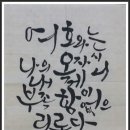 여호와는
나의 목자시니
내게
부족함이 없으
리로다